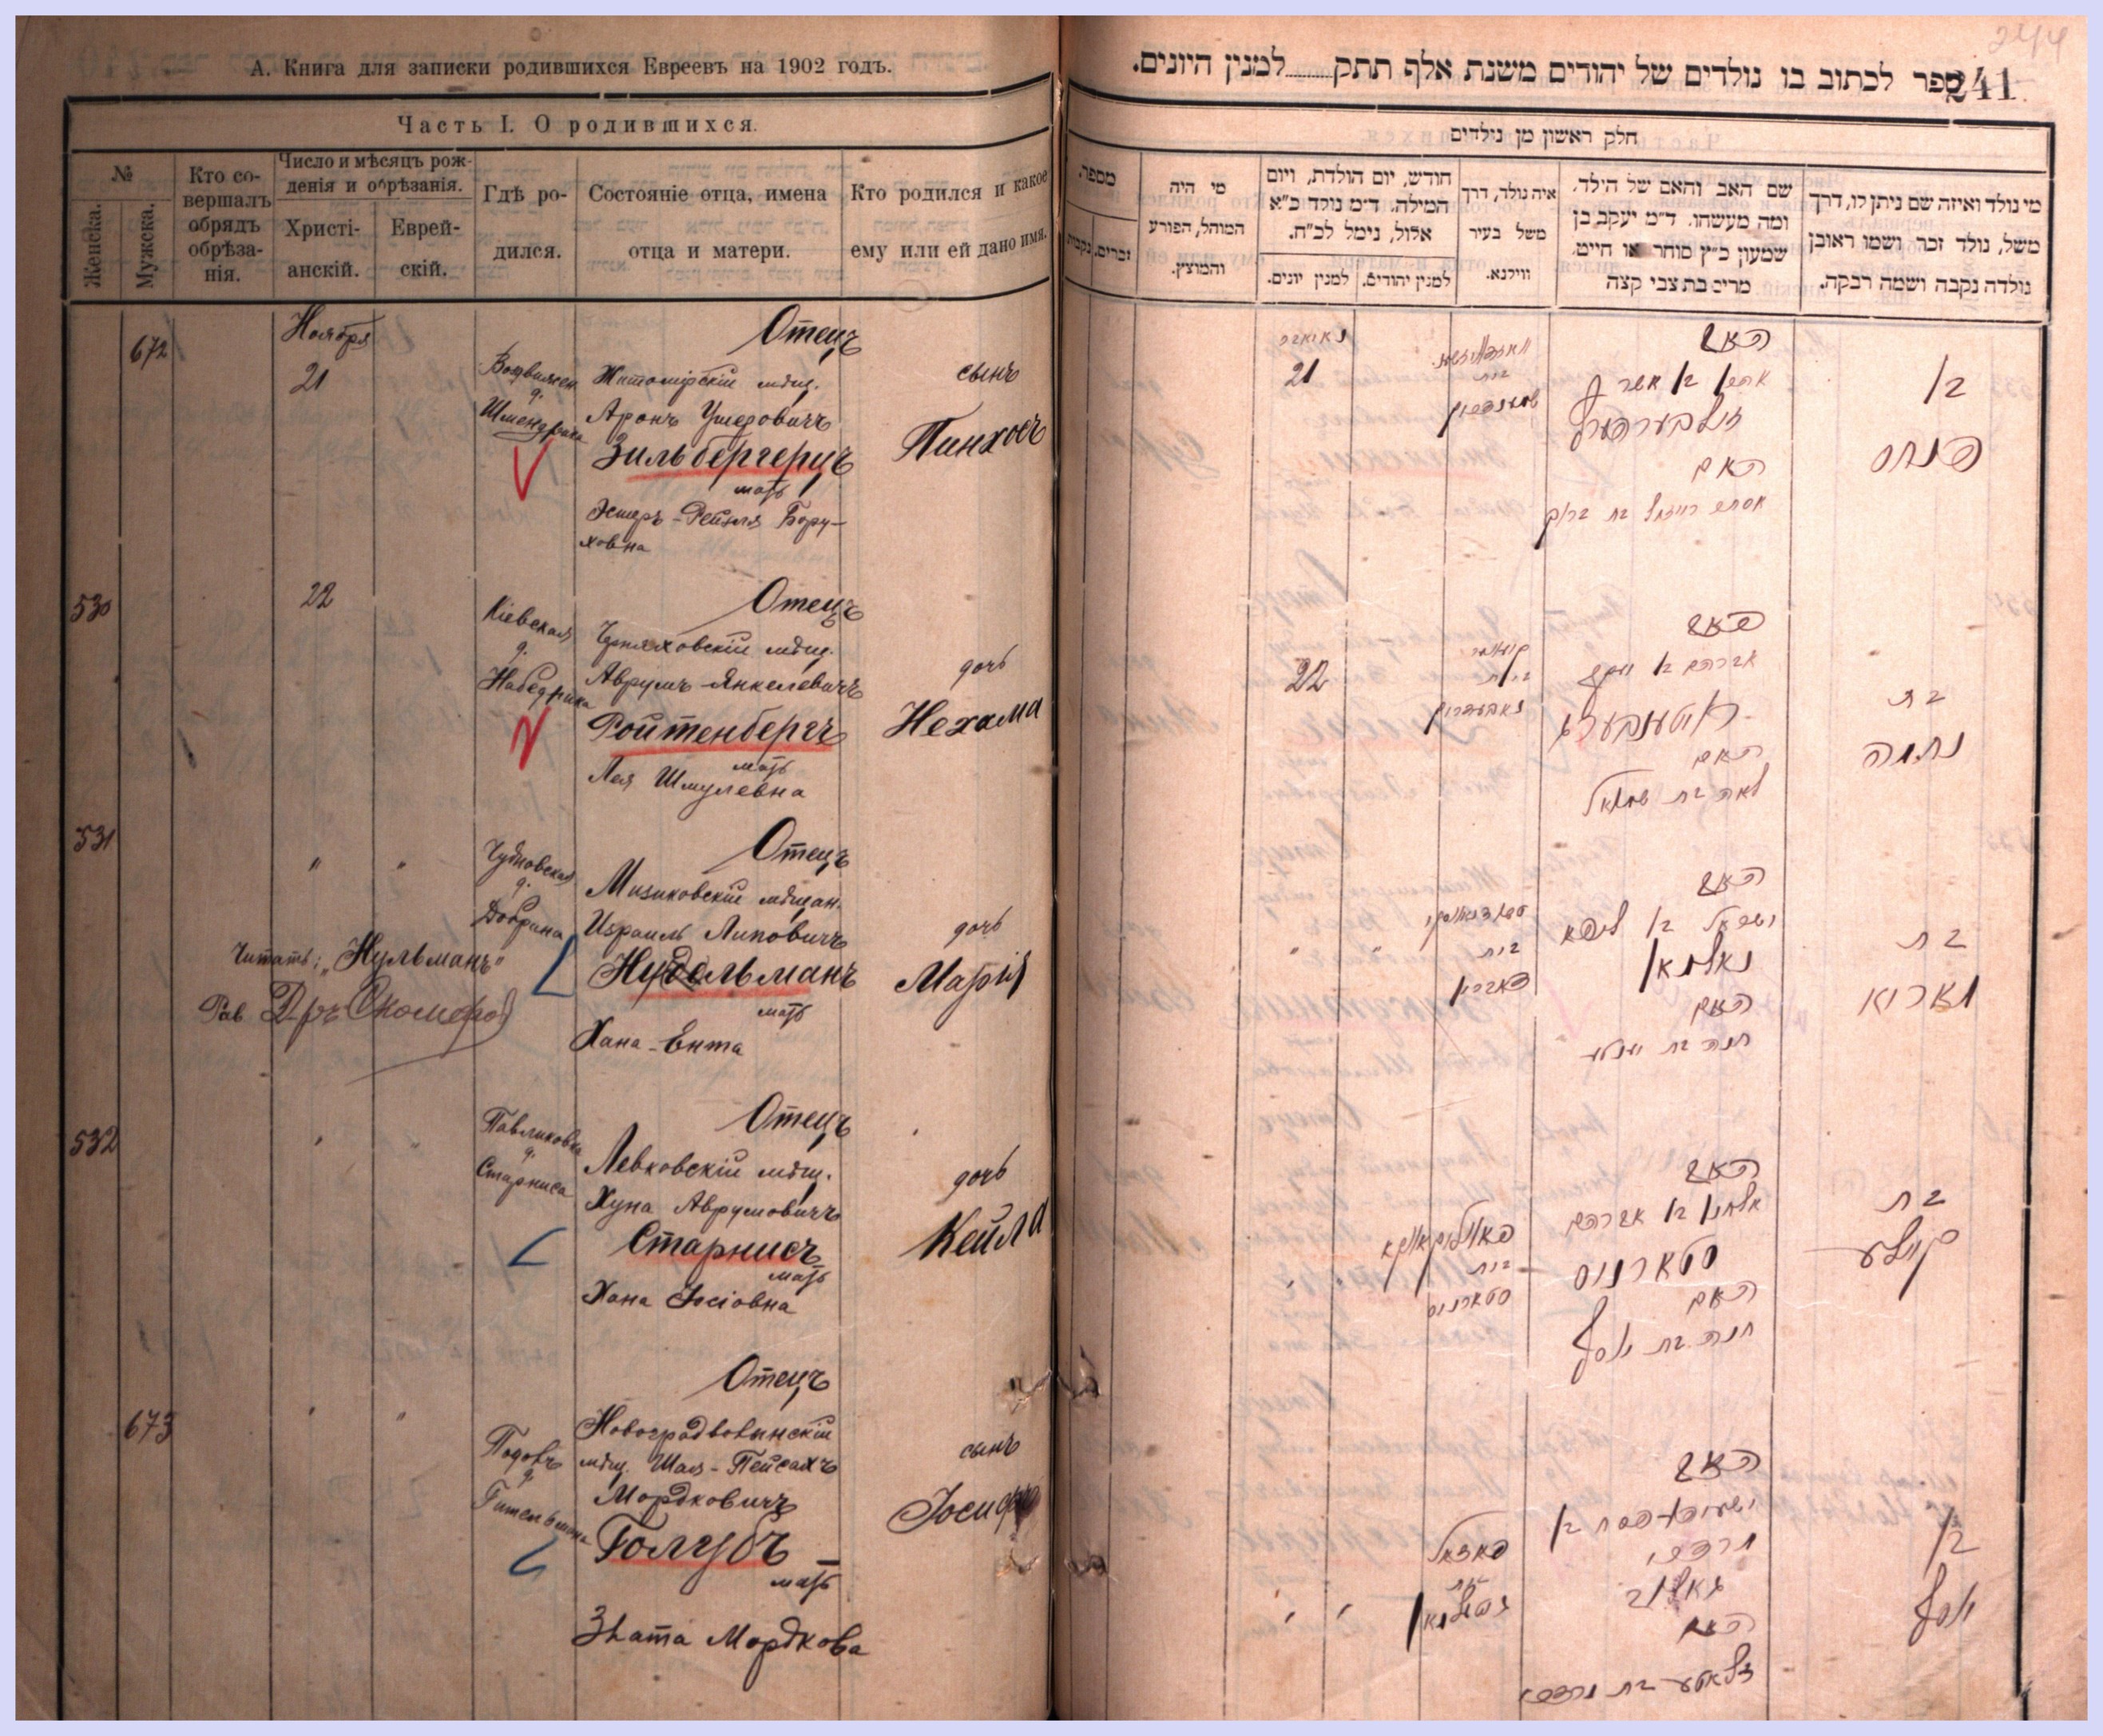 А. Книга для записки родившихся Евреевъ на 1902 годъ.
Часть I. О родившихся.
№
Женска.
Мужска.
Кто со-
вершалъ
обрядъ
обрѣза-
нія.
Число и мѣсяцъ рож-
денія и обрѣзанія.
Христі-
анскій.
Еврей-
скій.
Гдѣ ро-
дился.
Состояніе отца, имена
отца и матери.
Кто родился и какое
ему или ей дано имя.
672
Ноября
21
Шмендрика
Отецъ
Житомірскій мѣщ.
Аронъ Ушеровичъ
Зильбергерцъ
мать
Эстеръ-Рейзля Бору-
ховна
сынъ
Пинхосъ
530
22
Кіевская
д.
Набедрика
Отецъ
Черняховскій мѣщ.
Аврумъ Янкелевичъ
Ройтенбергъ
мать
Лея Шмулевна
дочь
Нехама
531
" "
Чудновская
д.
Добрина
Отецъ
Мизиковскій мѣщан.
Израиль Липовичъ
Нудельманъ
мать
Хана-Ента
дочь
Марія
Читать: „Нульманъ"
Рав. Д-ръ Скомеровскій
532
" "
Павликовка
д.
Старниса
Отецъ
Левковскій мѣщ.
Хуна Аврумовичъ
Старнисъ
мать
Хана Іосіовна
дочь
Кейла
673
" "
д.
Гительмана
Отецъ
Новоградволынскій
мѣщ. Шая-Пейсахъ
Мордковичъ
Голубъ
мать
Злата Мордкова
сынъ
Іосифъ
244
241
ספר לכתוב בו נולדים של יהודים משנת אלף תתק........למנין היונים.
חלק ראשון מן נולדים
מספר.
זכרים.
נקבות
מי היה
המוהל, הפורע
והמוצץ.
חודש, יום הולדת, ויום
המילה. ד״מ נולד כ״א
אלול, נימל לכ״ח.
למנין יהודים.
למנין יונים.
איה נולד, דרך
משל בעיר
ווילנא.
שם האב והאם של הילד.
ומה מעשהו. ד״מ יעקב בן
שמעון כ״ץ סוחר או חייט.
מרים בת צבי קצה
מי נולד ואיזה שם ניתן לו, דרך
משל, נולד זכר ושמו ראובן
נולדה נקבה ושמה רבקה.
21
האב
אהרן בן אשר
זילבערהערץ
האם
אסתר רייזל בת ברוך
בן
פנחס
22
בית
האב
אברהם בן יעקב
ראיטענבערג
האם
לאה בת שמואל
בת
נחמה
" "
בית
האב
ישראל בן ליפא
נולמאן
האם
בת
מאריא
" "
פאוליקאווקא
בית
סטארניס
האב
אלחנן בן אברהם
סטארניס
האם
חנה בת יוסף
בת
קיילע
" "
בית
האב
ישעיה פסח בן
מרדכי
גאלוב
האם
זלאטע בת מרדכי
בן
יוסף